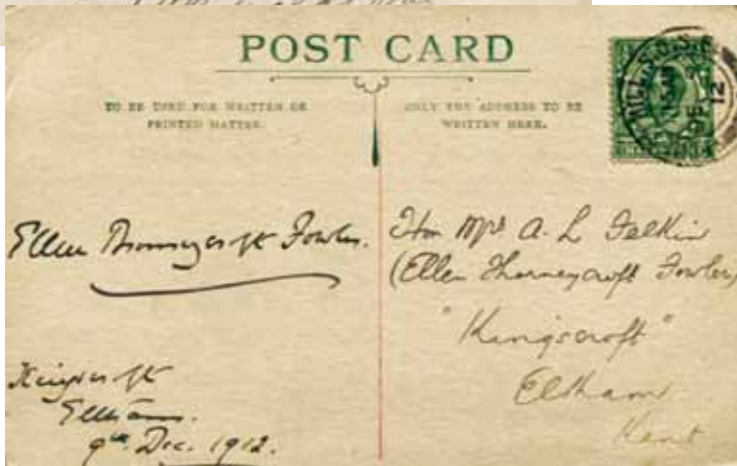 POST CARD
TO BE USED FOR WRITTEN OR
PRINTED MATTER.
ONLY THE ADDRESS TO BE
WRITTEN HERE.
12
Ellen Thorneycroft Fowler.
Kingscroft
Eltham.
9th Dec. 1912.
Hon Mrs A. L Felkin
(Ellen Thorneycroft Fowler)
"Kingscroft"
Eltham
Kent